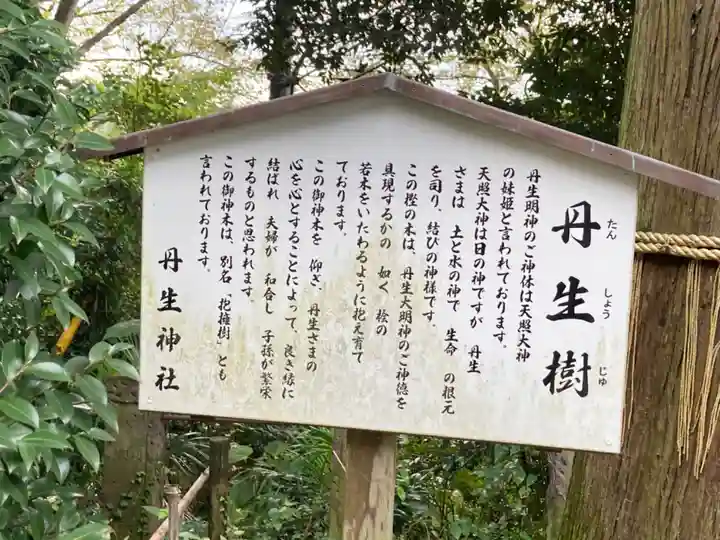 丹生樹
たん しょう じゅ
丹生明神のご神体は天照大神
の妹姫と言われております。
天照大神は日の神ですが 丹生
さまは 土と水の神で 生命 の根元
を司り、結びの神様です。
この樫の木は、丹生大明神のご神徳を
具現するかの 如く 桧の
若木をいたわるように抱え育て
ております。
この御神木を 仰ぎ、丹生さまの
心を心とすることによって、良き縁に
結ばれ 夫婦が 和合し 子孫が繁栄
するものと思われます。
この御神木は、別名「抱擁樹」とも
言われております。
丹生神社